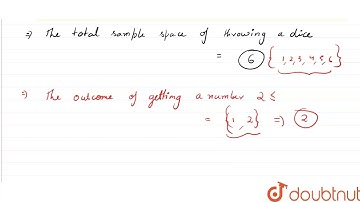 ⇒) The total sample space of throwing a dice
= 6 { 1, 2, 3, 4, 5, 6 }
⇒) The outcome of getting a number 2 ≤
= { 1, 2 } ⇒) 2
doubtnut